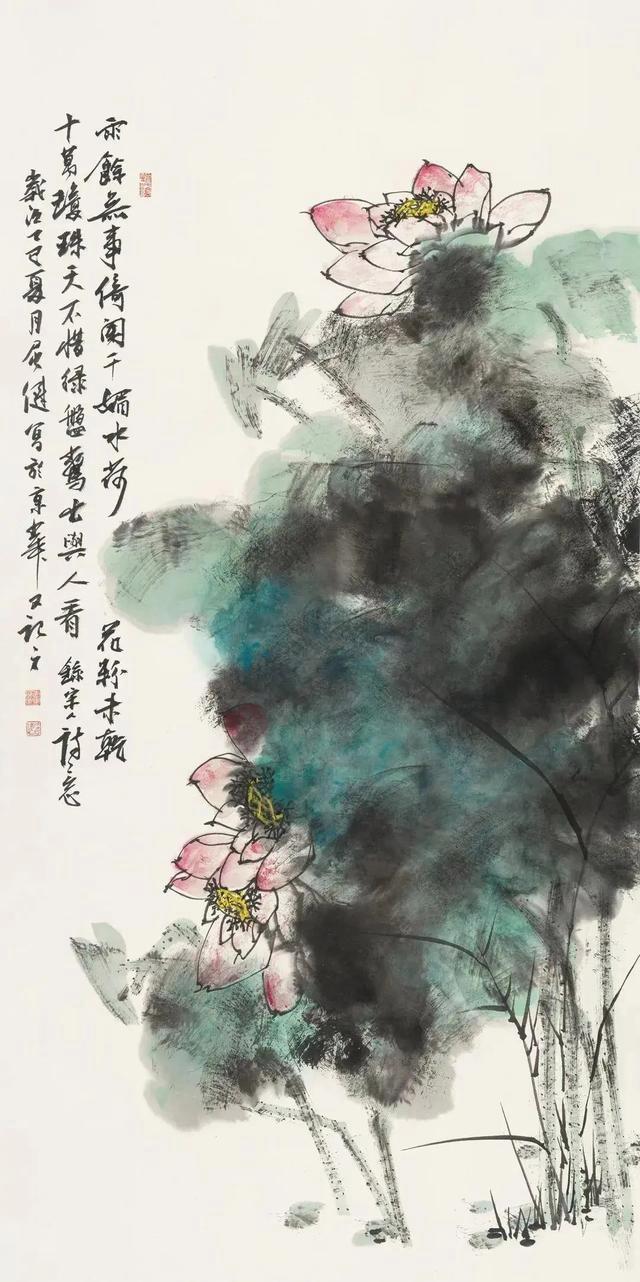 雨餘無事倚闌干媚水荷花粉未乾
十萬瓊珠天不惜綠盤擎出與人看錄宋人詩意
歲次乙巳夏月健寫於京華又記之